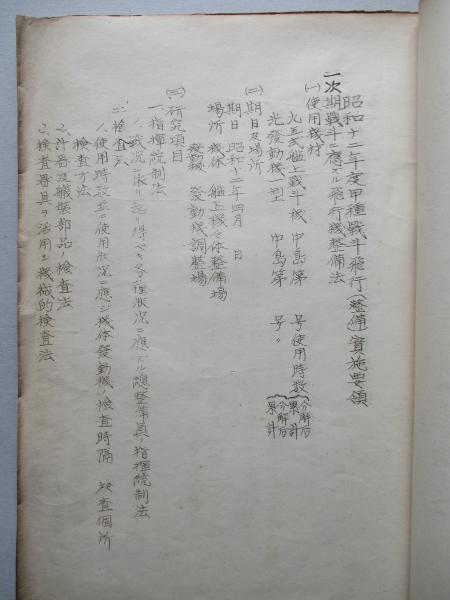 昭和十二年度甲種戦斗飛行(整備)実施要領
一次期戦斗ニ應ズル飛行機整備法
(一)使用機材
九五式艦上戦斗機 中島第 号使用時数 分解后 累計
光發動機一型 中島第 号 〃 分解后 累計
(二)期日及場所
期日 昭和十二年四月 日
場所 機体 艦上機々体整備場
發動機 發動機調整場
(三)研究項目
一、指揮統制法
1、戦況ニ依リ起リ得ベキ各種状況ニ應ズル 整備員ノ指揮統制法
二、検査
1、使用時数並ニ使用状況ニ應ジ機体發動機ノ検査時隔 検査個所
検査方法
2、計器及艤装部品ノ検査法
3、検査器具ヲ活用シ機械的検査法